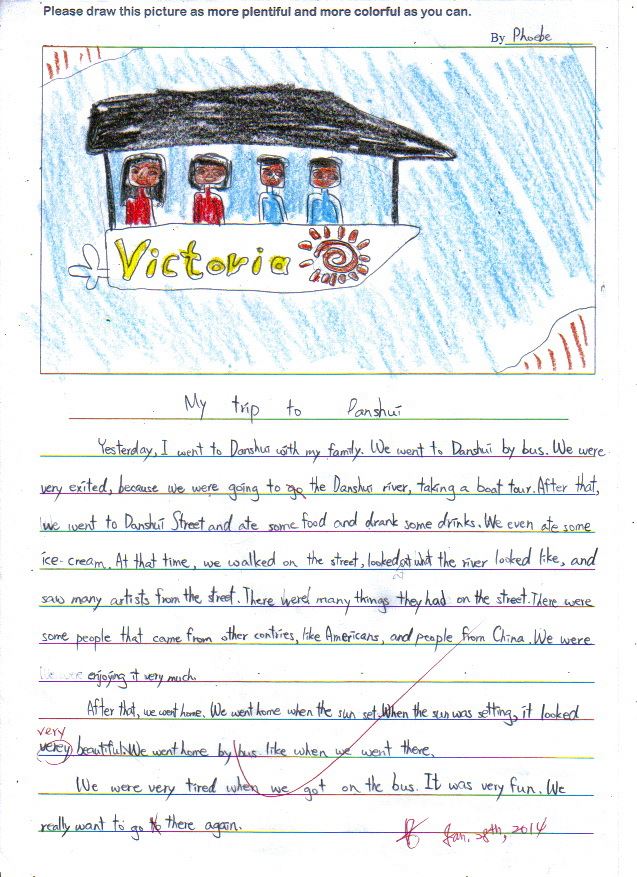 Please draw this picture as more plentiful and more colorful as you can.
By Phoebe
Victoria
My trip to Danshui
Yesterday, I went to Danshui with my family. We went to Danshui by bus. We were
very exited, because we were going to go the Danshui river, taking a boat tour. After that,
we went to Danshui Street and ate some food and drank some drinks. We even ate some
ice-cream. At that time, we walked on the street, looked at what the river looked like, and
saw many artists from the street. There were many things they had on the street. There were
some people that came from other contries, like Americans, and people from China. We were
We were enjoying it very much.
After that, we went home. We went home when the sun set. When the sun was setting, it looked
very
verey beautiful. We went home by bus like when we went there.
We were very tired when we got on the bus. It was very fun. We
really want to go to there again.
Jan. 28th, 2014